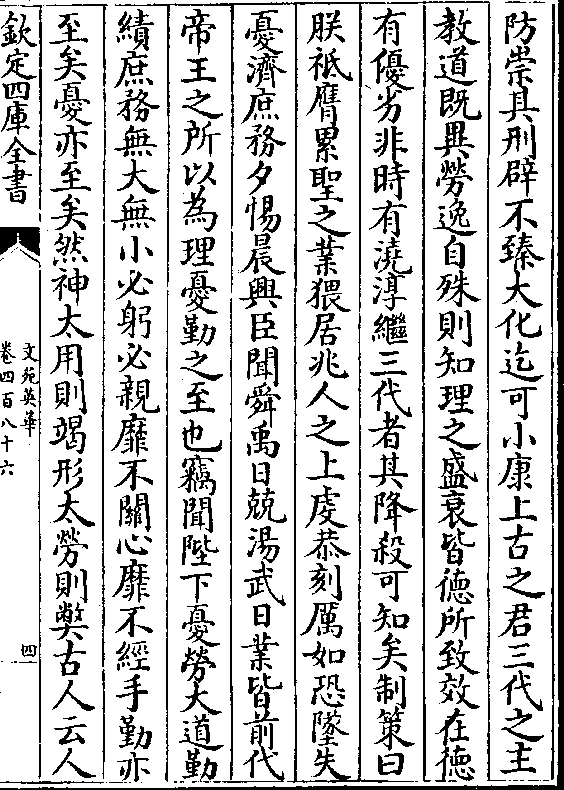 防崇其刑辟不臻大化迄可小康上古之君三代之主
教道既異勞逸自殊則知理之盛衰皆徳所致效在徳
有優劣非時有澆淳繼三代者其降殺可知矣制策曰
朕祗膺累聖之業猥居兆人之上虔恭刻厲如恐墜失
憂濟庶務夕惕晨興臣聞舜禹日兢湯武日業皆前代
帝王之所以為理憂勤之至也竊聞陛下憂勞大道勤
績庶務無大無小必躬必親靡不關心靡不經手勤亦
至矣憂亦至矣然神太用則竭形太勞則獘古人云人
欽定四庫全書
文苑英華
卷四百八十六
四